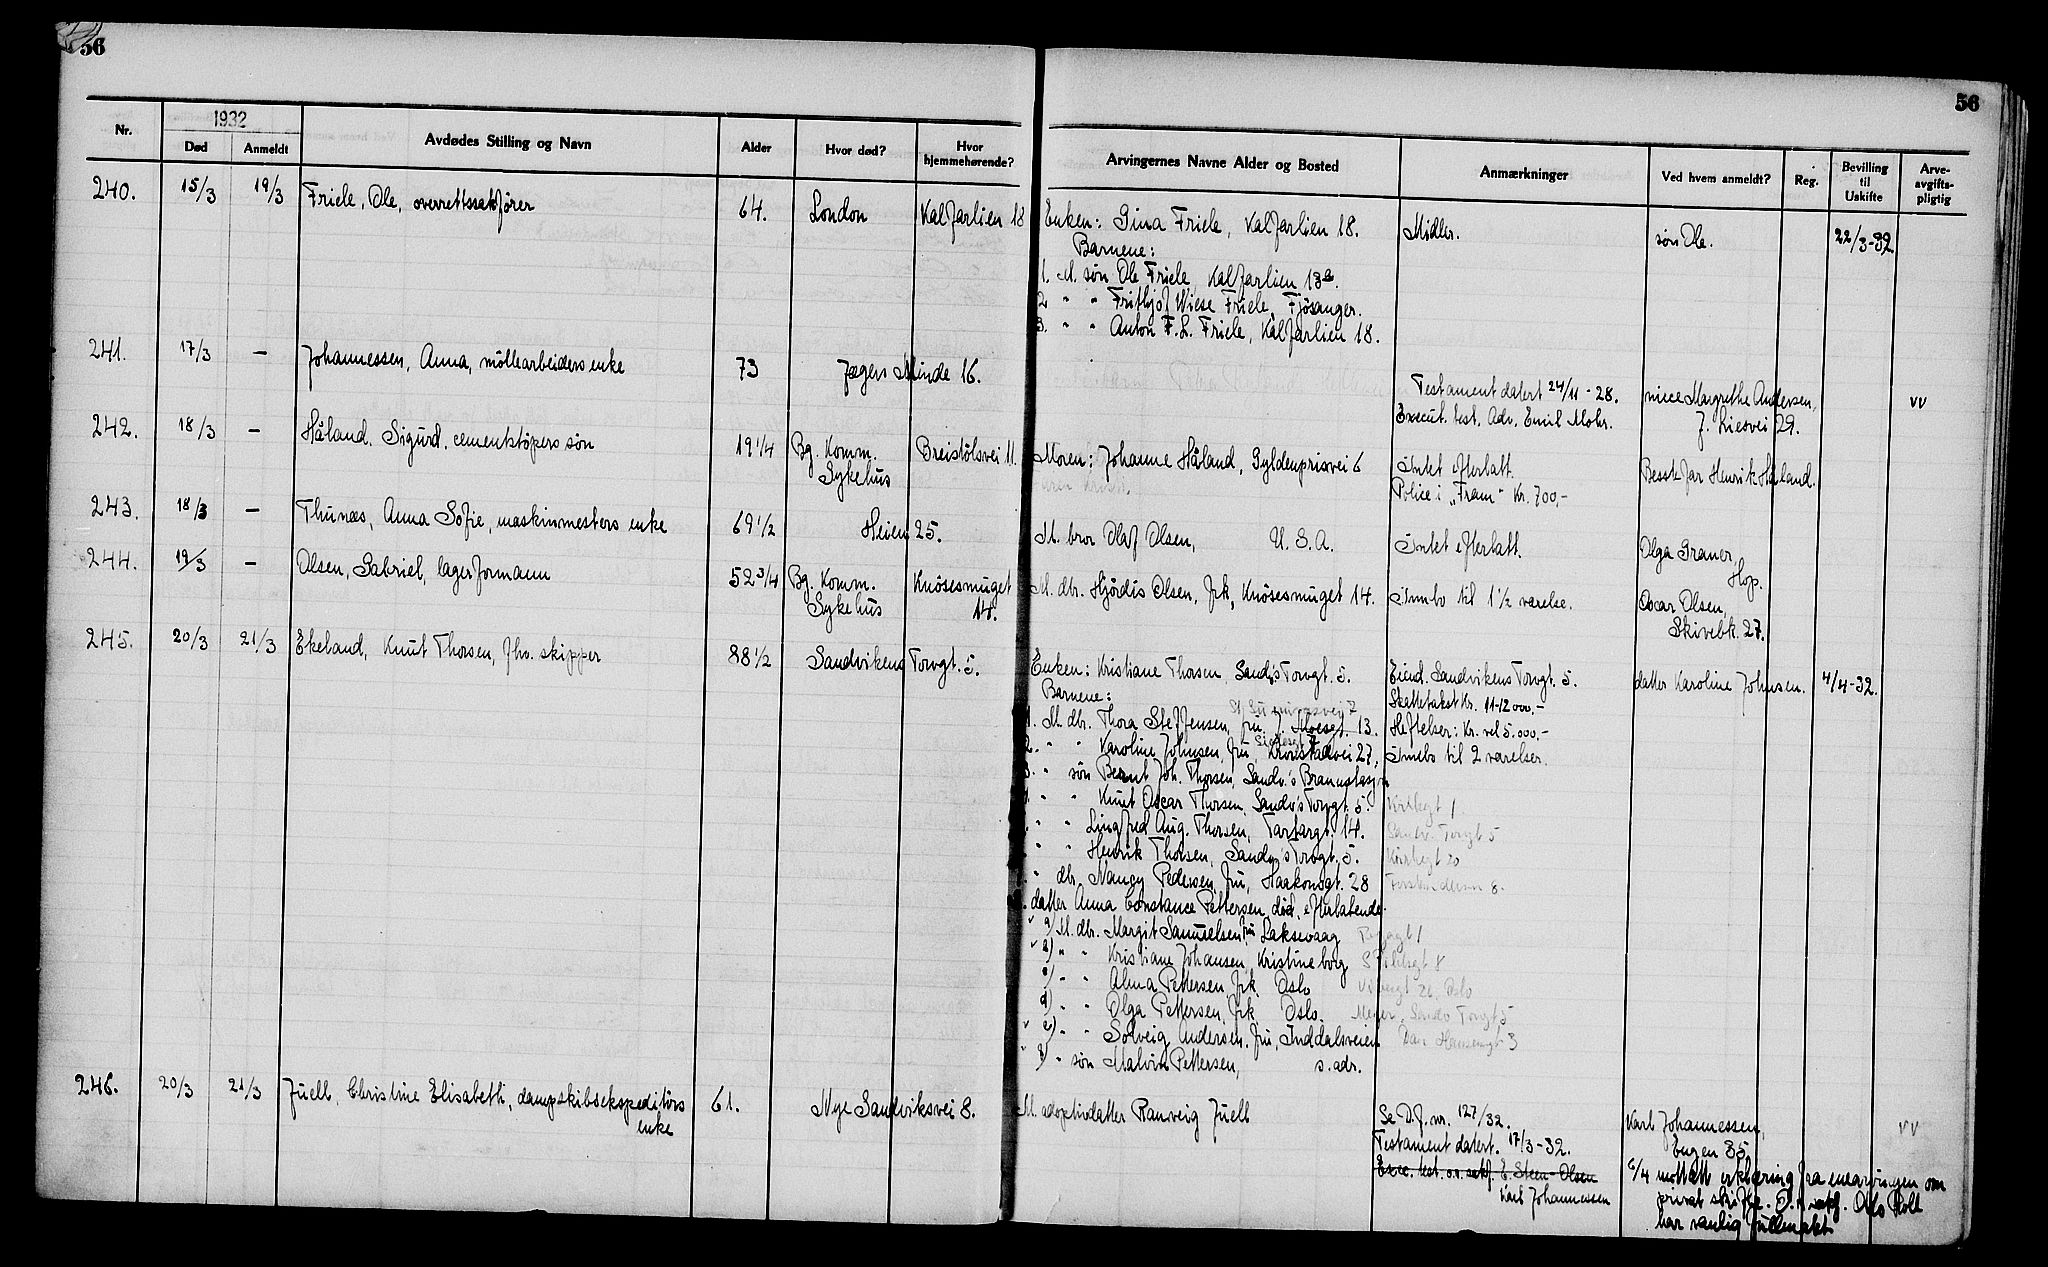 56
56
1932
Nr.
Død
Anmeldt
Avdødes Stilling og Navn
Alder
Hvor død?
Hvor hjemmehørende?
Arvingernes Navne Alder og Bosted
Anmærkninger
Ved hvem anmeldt?
Reg.
Bevilling til Uskifte
Arve-avgifts-pligtig
240. 15/3 19/3 Friele, Ole, overrettssakfører 64. London Kalfarlien 18 Enken: Gina Friele, Kalfarlien 18. Midler. søn Ole. 22/3-32
Barnene:
1. M. søn Ole Friele, Kalfarlien 13a.
2 " " Frithjof Wiese Friele, Fjøsanger.
3. " " Anton F. L. Friele, Kalfarlien 18.
241. 17/3 – Johannessen, Anna, möllearbeiders enke 73 Jægers Minde 16.
Testament datert 24/11-28. niece Margrethe Andersen, vv
Execut. test. Adv. Emil Mohr. J. Liesvei 29.
242. 18/3 – Håland. Sigurd, cementstøpers søn 19 1/4 Bg. Komm. Sykehus Breistölsvei 11. Moren: Johanne Håland, Gyldenprisvei 6 Intet efterlatt. Bestefar Henrik Håland.
Police i "Fram" Kr. 700,-
243. 18/3 – Thunæs, Anna Sofie, maskinmesters enke 69 1/2 Heien 25. M. bror Olaf Olsen, U. S. A. Intet efterlatt. Olga Graner, Hop.
244. 19/3 – Olsen, Gabriel, lagerformann 52 3/4 Bg. Komm. Sykehus Knösesmuget 14. M. dbr. Hjördis Olsen, frk, Knösesmuget 14. Innbo til 1 1/2 værelse. Oscar Olsen,
Skivebk. 27.
245. 20/3 21/3 Ekeland, Knut Thorsen, fhv. skipper 88 1/2 Sandvikens Torvgt. 5. Enken: Kristiane Thorsen, Sandv's Torvgt. 5. Eiend. Sandvikens Torvgt. 5. datter Karoline Johnsen. 4/4-32.
Barnene: Skattetakst Kr. 11-12 000.-
1. M. dbr. Thora Steffensen, fru, J. Moesgt. 13. Heftelser: Kr. vel 5.000.-
2. " " Karoline Johnsen, fru, Kronstadvei 27, Innbo til 2 værelser.
3. " søn Bernt Joh. Thorsen, Sandv.'s Brannstasjon
" " Knut Oscar Thorsen, Sandv's Torvgt. 5.
" " Lingfred Aug. Thorsen, Tartargt. 14. Sandv. Torvgt 5
" " Henrik Thorsen, Sandv's Torvgt. 5.
" dbr. Nancy Pedersen, fru, Haakonsgt. 28
datter Anna Constance Pettersen, død, efterlatende:
a) M. dbr. Margit Samuelsen, fru Laksevaag
b) " " Kristiane Johansen, Kristineborg
c) " " Alma Pettersen, frk. Oslo
d) " " Olga Pettersen, frk Oslo. Meyer, Sandv Torvgt 5
e) " " Solveig Andersen, fru, Inddalsveien
f) " søn Malvin Pettersen, s. adr.
246. 20/3 21/3 Juell, Christine Elisabeth, dampskibsekspeditörs enke 61. Nye Sandviksvei 8. M. adoptivdatter Ranveig Juell Se D.f. nr. 127/32. Karl Johannessen, vv
Testament datert. 17/3-32. Engen 35.
Exec. test. o.r. sakf. E. Steen-Olsen 6/4 mottatt erklæring fra enearvingen om
Karl Johannessen privat skifte. O.r. sakf. Odo Rolt
har vanlig fullmakt